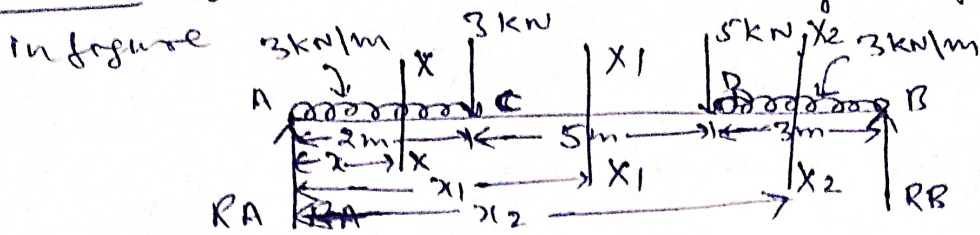 in figure 3kN/m X 3kN X1 5kN X2 3kN/m
A C D B
2m 5m 3m
x X
x1 X1 X2
RA x2 RB